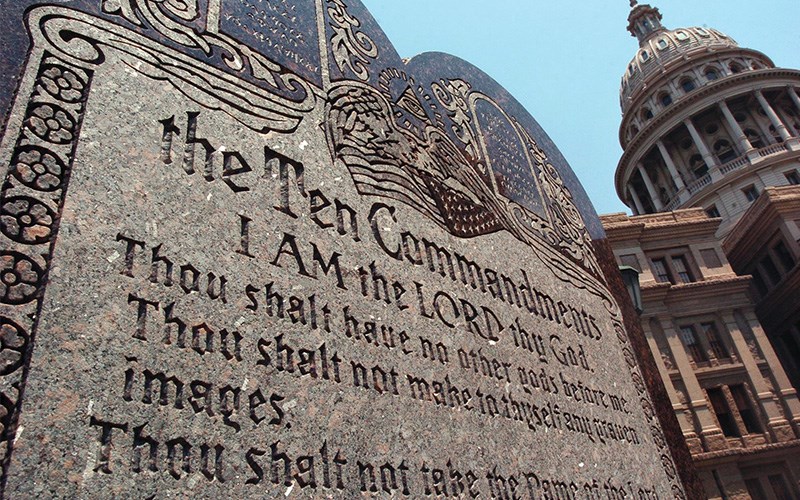 the Ten Commandments
I AM the LORD thy God.
Thou shalt have no other gods before me.
Thou shalt not make to thyself any graven
images.
Thou shalt not take the Name of the Lord